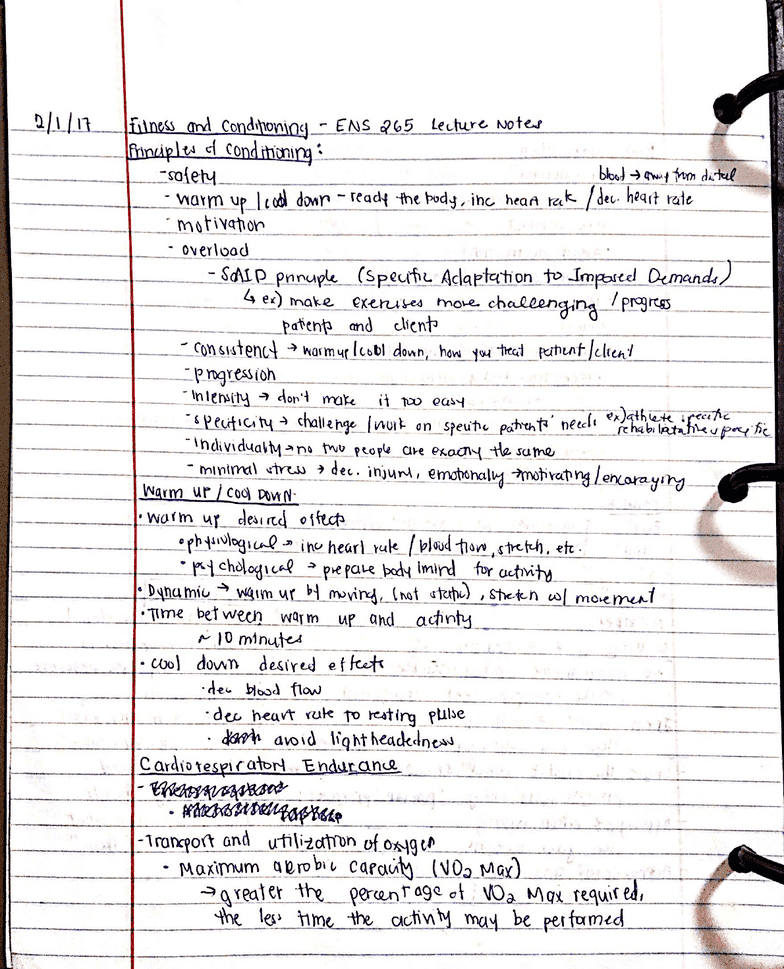 2/1/17 Fitness and Conditioning - ENS 265 Lecture Notes
Principles of Conditioning:
-safety
blood → away from distal
- warm up / cool down - ready the body, inc heart rate / dec. heart rate
- motivation
- overload
- SAID principle (Specific Adaptation to Imposed Demands)
↳ ex) make exercises more challenging / progress
patients and clients
- consistency → warmup/cool down, how you treat patient/client
- progression
- Intensity → don't make it too easy
- specificity → challenge / work on specific patients' needs ex) athlete specific
rehabilitative specific
- Individuality → no two people are exactly the same
- minimal stress → dec. injury, emotionally → motivating/encouraging
Warm up / cool Down
• warm up desired effects
• physiological → inc heart rate / blood flow, stretch, etc.
• psychological → prepare body/mind for activity
• Dynamic → warm up by moving, (not static), stretch w/ movement
• Time between warm up and activity
~ 10 minutes
• cool down desired effects
• dec blood flow
• dec heart rate to resting pulse
• avoid lightheadedness
Cardiorespiratory Endurance
-Transport and utilization of oxygen
• Maximum aerobic capacity (VO2 Max)
→ greater the percentage of VO2 Max required,
the less time the activity may be performed